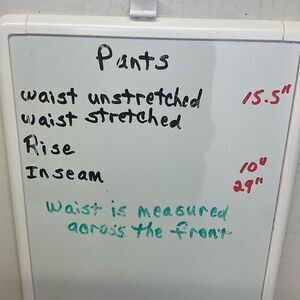 Pants
waist unstretched 15.5"
waist stretched
Rise 10"
Inseam 29"
Waist is measured
across the front